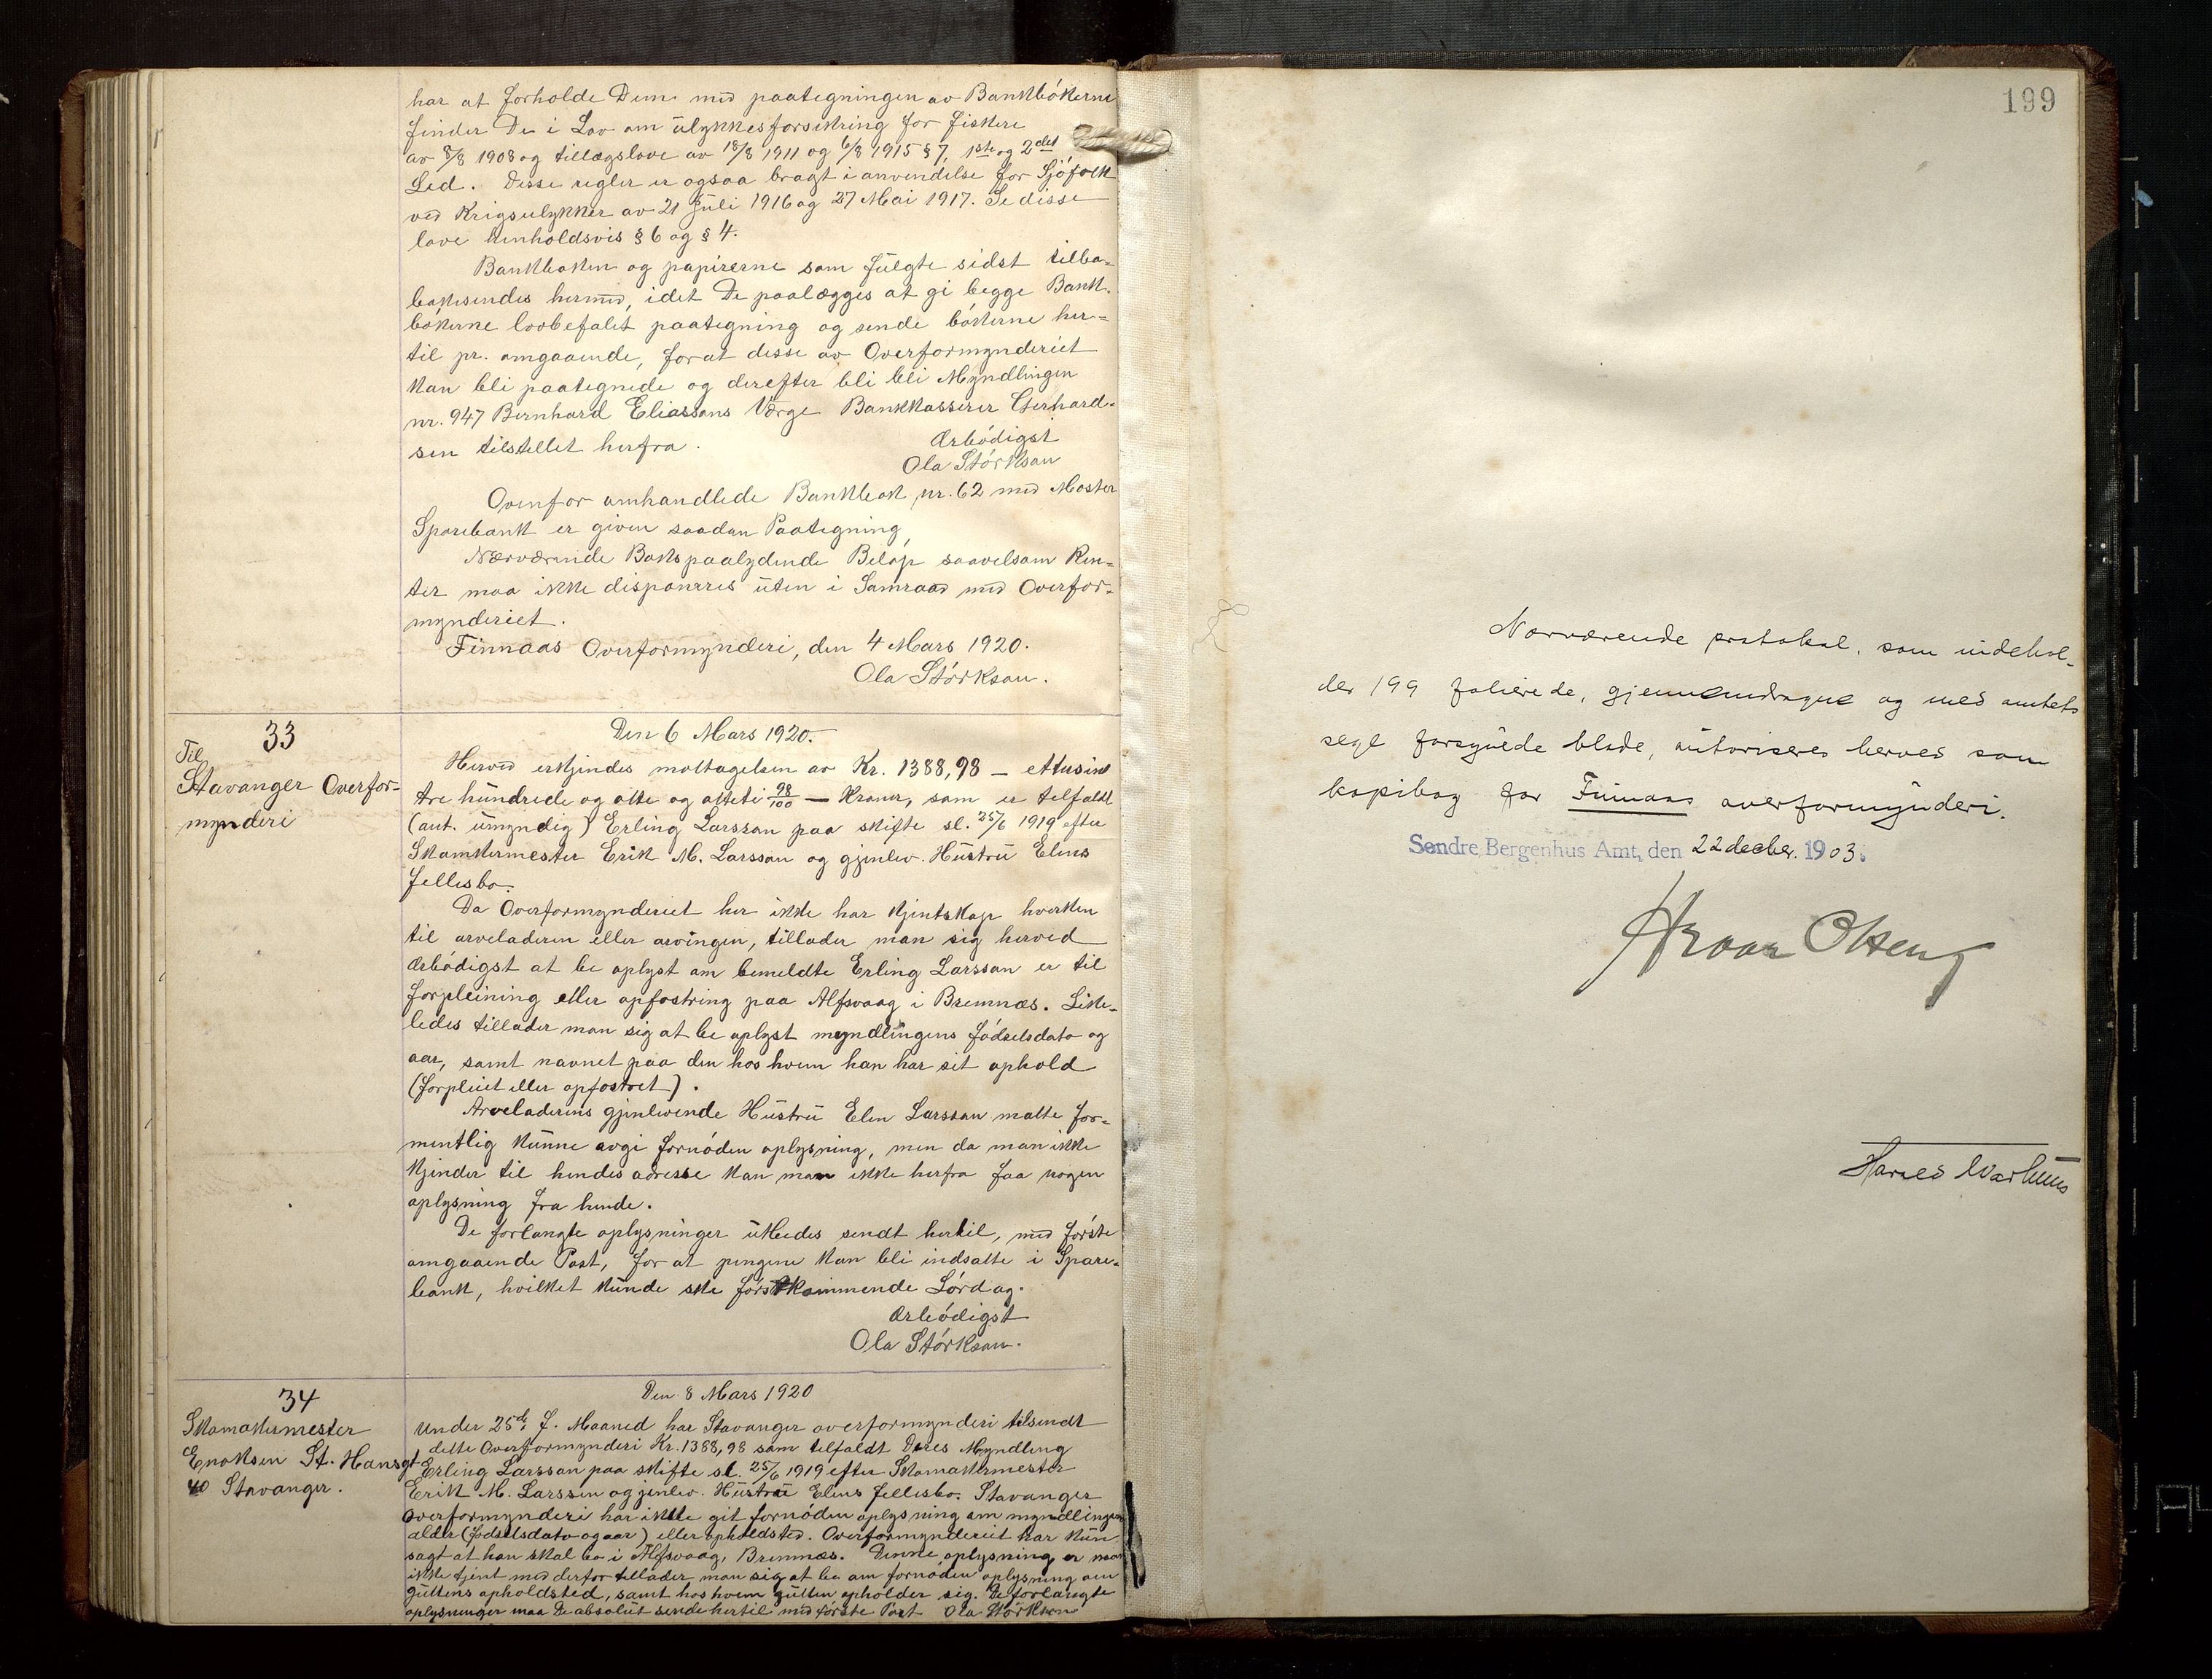 har at forholde Dem med paategningen av Bankbókerne
finder De i Lov om ulykkesforsikring for fiskere
av 8/8 1908 og tillægslove av 18/8 1911 og 6/8 1915 § 7, 1ste og 2det
Led. Disse regler er ogsaa bragt i anvendelse for Sjófolk
ved Krigsulykker av 21 Juli 1916 og 27 Mai 1917. Se disse
love henholdsvis § 6 og § 4.
Bankboken og papirerne som fulgte sidst tilba-
bakesendes hermed, idet De paalægges at gi begge Bank-
bókerne lovbefalet paategning og sende bókerne her-
til pr. omgaaende, forat disse av Overformynderiet
kan bli paategnede og derefter bli bli Myndlingen
nr. 947 Bernhard Eliassons Værge Bankkasserer Gerhard-
sen tilstillet herfra.
Ærbódigst
Ola Stórkson
Ovenfor omhandlede Bankbok nr. 62 med Moster
Sparebank er given saadan Paategning
Nærværende Boks paalydende Belóp saavelsom Ren-
ter maa ikke disponeres uten i Samraad med Overfor-
mynderiet.
Finnaas Overformynderi, den 4 Mars 1920.
Ola Stórkson.
33
Til
Stavanger Overfor-
mynderi
Den 6 Mars 1920.
Herved erkjendes mottagelsen av Kr. 1388,98 — ettusind
tre hundrede og otte og otteti 98/100 — Kroner, som er tilfaldt
(ant. umyndig) Erling Larsson paa skifte sl. 25/6 1919 efter
Skomakermester Erik M. Larsson og gjenlev. Hustru Elens
fellesbo.
Da Overformynderiet her ikke har kjentskap hverken
til arveladeren eller arvingen, tillader man sig herved
ærbódigst at be oplyst om bemeldte Erling Larsson er til
forpleining eller opfostring paa Alfsvaag i Bremnæs. Like-
ledes tillader man sig at be oplyst myndlingens fódselsdato og
aar, samt navnet paa den hos hvem han har sit ophold
(forpleiet eller opfostret).
Arveladerens gjenlevende Hustru Elen Larsson matte for-
mentlig kunne avgi fornóden oplysning, men da man ikke
kjender til hendes adresse kan man ikke herfra faa nogen
oplysning fra hende.
De forlangte oplysninger utbedes sendt hertil, med fórste
omgaaende Post, for at pengene kan bli indsatte i Spare-
bank, hvilket kunde ske fórstkommende Lórdag.
Ærbódigst
Ola Stórkson.
34
Skomakermester
Enoksen St. Hansgt
40 Stavanger.
Den 8 Mars 1920
Under 25de f. Maaned har Stavanger overformynderi tilsendt
dette Overformynderi Kr. 1388,98 som tilfaldt Deres Myndling
Erling Larsson paa skifte sl. 25/6 1919 efter Skomakermester
Erik M. Larssen og gjenlev. Hustru Elens fellesbo. Stavanger
overformynderi har ikke git fornóden oplysning om myndlingens
alder (fódselsdato og aar) eller opholdsted. Overformynderiet har kun
sagt at han skal bo i Alfsvaag, Bremnæs. Denne oplysning er man
ikke tjent med derfor tillader man sig at be om fornóden oplysning om
guttens opholdsted, samt hos hvem gutten opholder sig. De forlangte
oplysninger maa De absolut sende hertil med fórste Post Ola Stórkson
199
Nærværende protokol, som indehol-
der 199 folierede, gjennemdragne og med amtets
segl forsynede blade, autoriseres herved som
kopibog for Finnaas overformynderi.
Søndre Bergenhus Amt, den 22 decbr. 1903.
Hroar Olsen